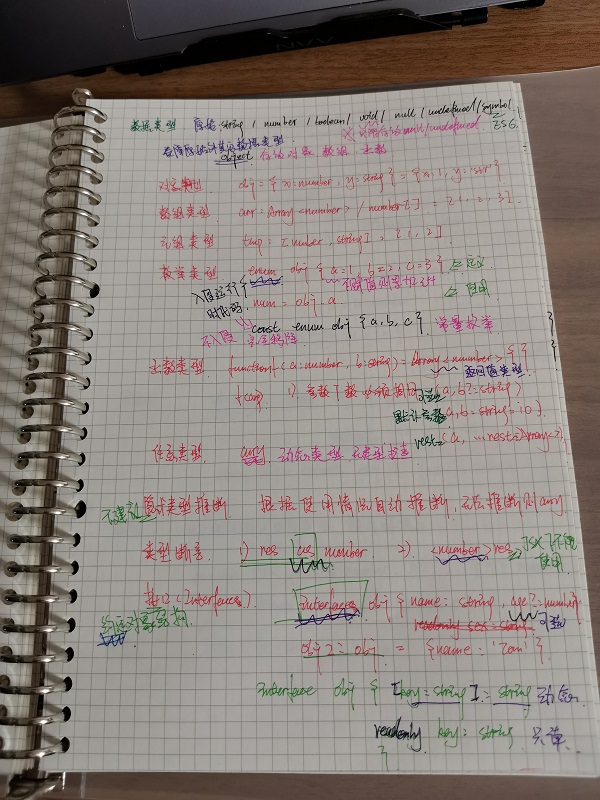 数据类型 原始 string / number / boolean / void / null / undefined / symbol
只能存储null/undefined ES6
object 存储对象 数组 函数
对象类型 obj: { x: number, y: string } = { x: 1, y: 'str' }
数组类型 arr: Array<number> / number[] = [1, 2, 3]
元组类型 tmp: [number, string] = [1, 2]
枚举类型 enum obj { a=1, b=2, c=3 } 定义
入值运行时代码 num = obj.a 使用
const enum obj { a, b, c } 常量枚举
函数类型 function f(a: number, b: string): Array<number> { }
返回值类型
f(a) 1) 参数个数必须相同 可选 (a, b?: string)
默认参数 (a, b: string = 10)
rest: (a, ...rest: Array<>)
任意类型 any 动态类型 无类型检查
不建议 隐式类型推断 根据使用情况自动推断,无法推断则any
类型断言 1) res as number 2) <number>res JSX下不能使用
接口(Interfaces) interfaces obj { name: string, age?: number
约定对象结构 readonly sex: string 可选
obj2: obj = {name: 'Tom'}
interface obj { [key: string]: string 动态
readonly key: string 只读
}